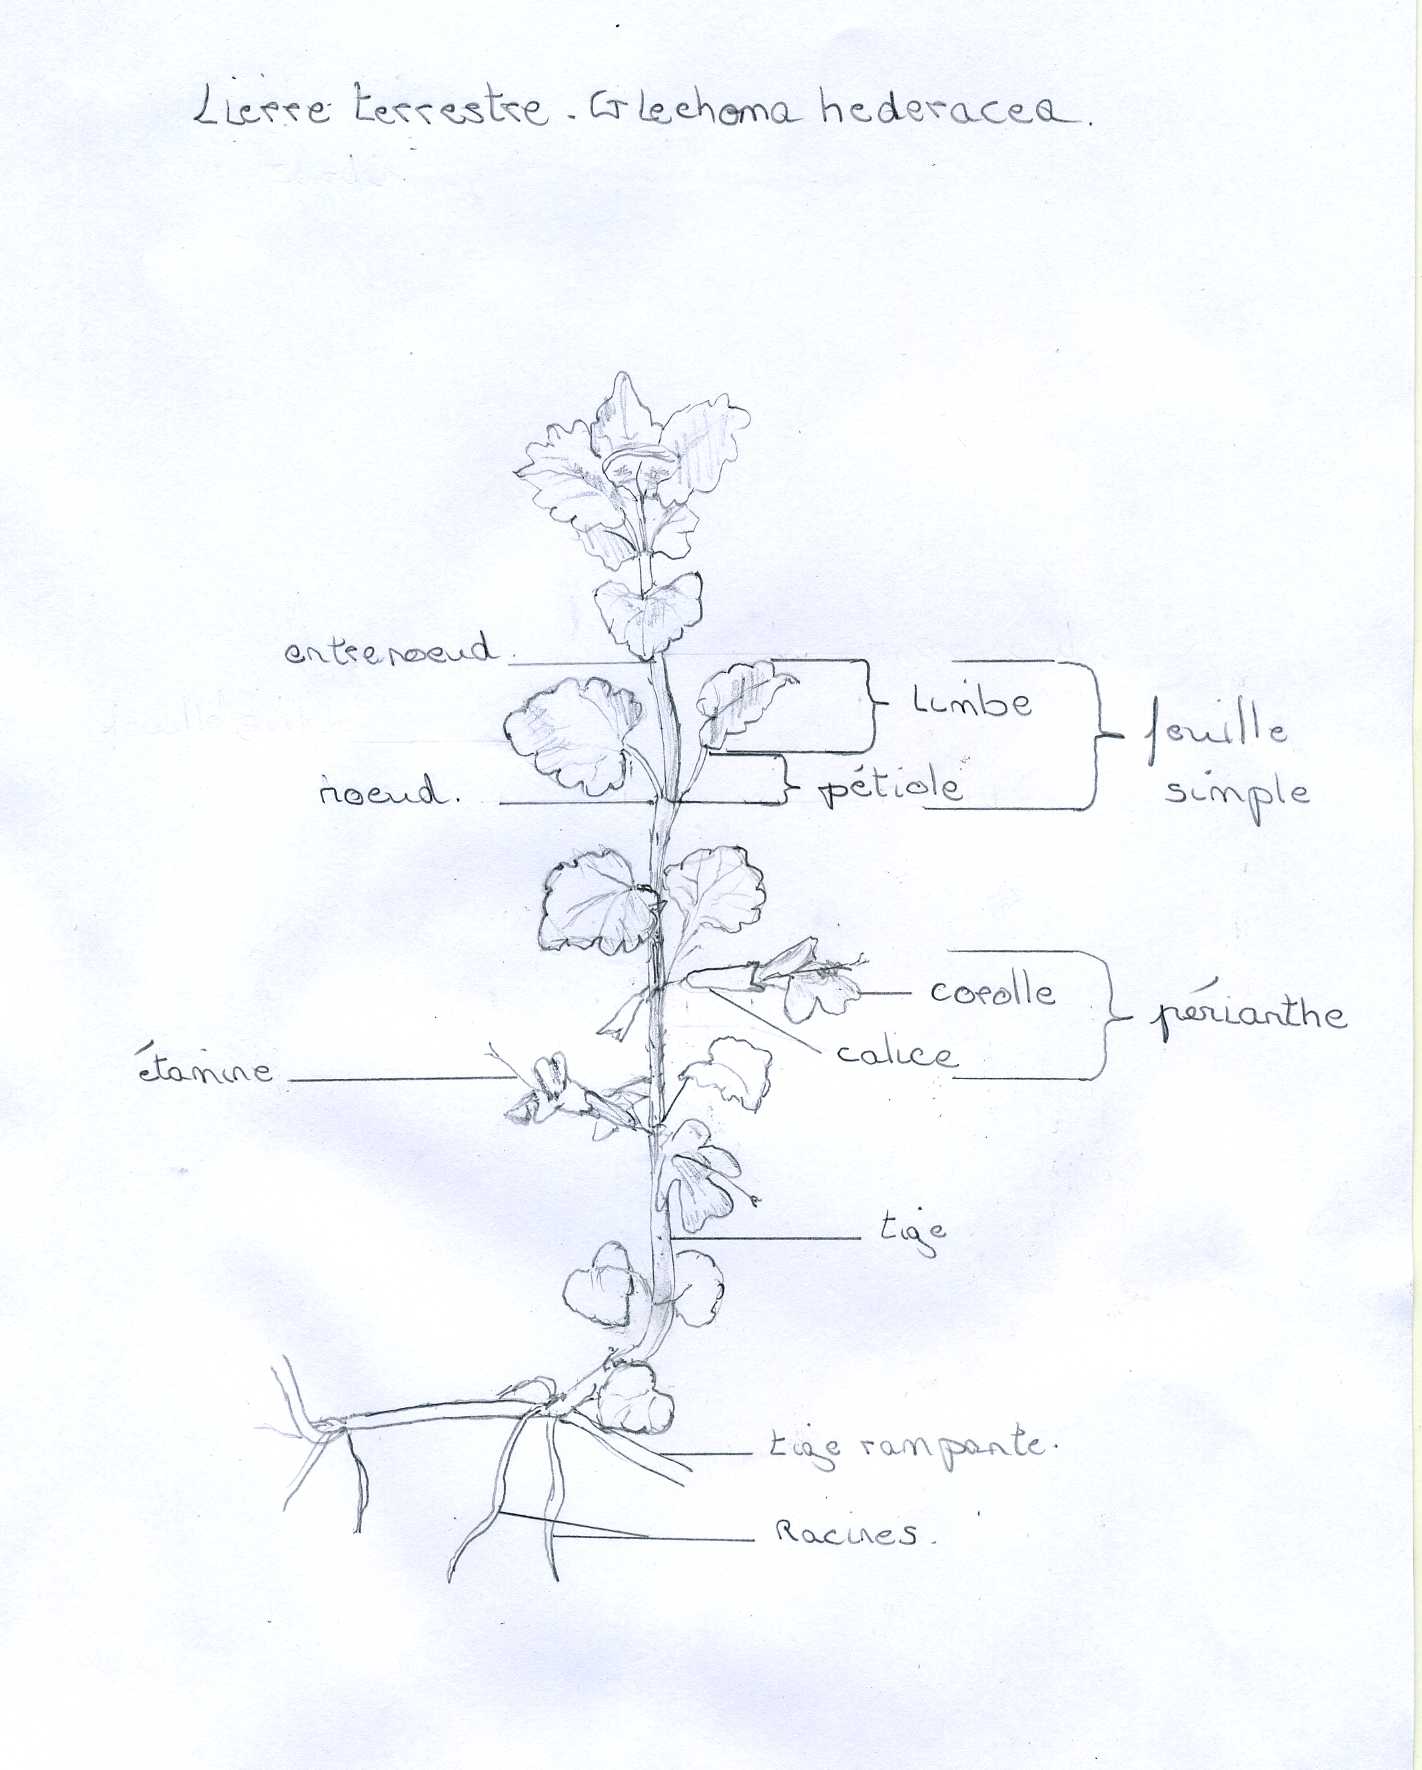 Lierre terrestre. Glechoma hederacea.
entrenoeud.
Limbe
feuille
simple
noeud.
pétiole
corolle
périanthe
calice
étamine
tige
tige rampante.
Racines.